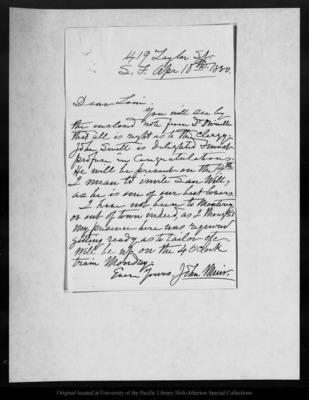 419 Taylor St.
S. F. Apr. 10th 1880.
Dear Louie.
You will see by
the enclosed note from Dr
that all is right as to the Clergy.
John Swett is delighted & most
profuse in Congratulations.
He will be present on the 14th
I mean to invite Sam Will;
as he is one of our best
I have not been to Monterey
or out of town indeed, as I thought
my presence here was required
getting ready as to tailor etc
Will be up on the 4 O'clock
train Monday.
Ever Yours, John Muir.
Original located at University of the Pacific Library Holt-Atherton Special Collections